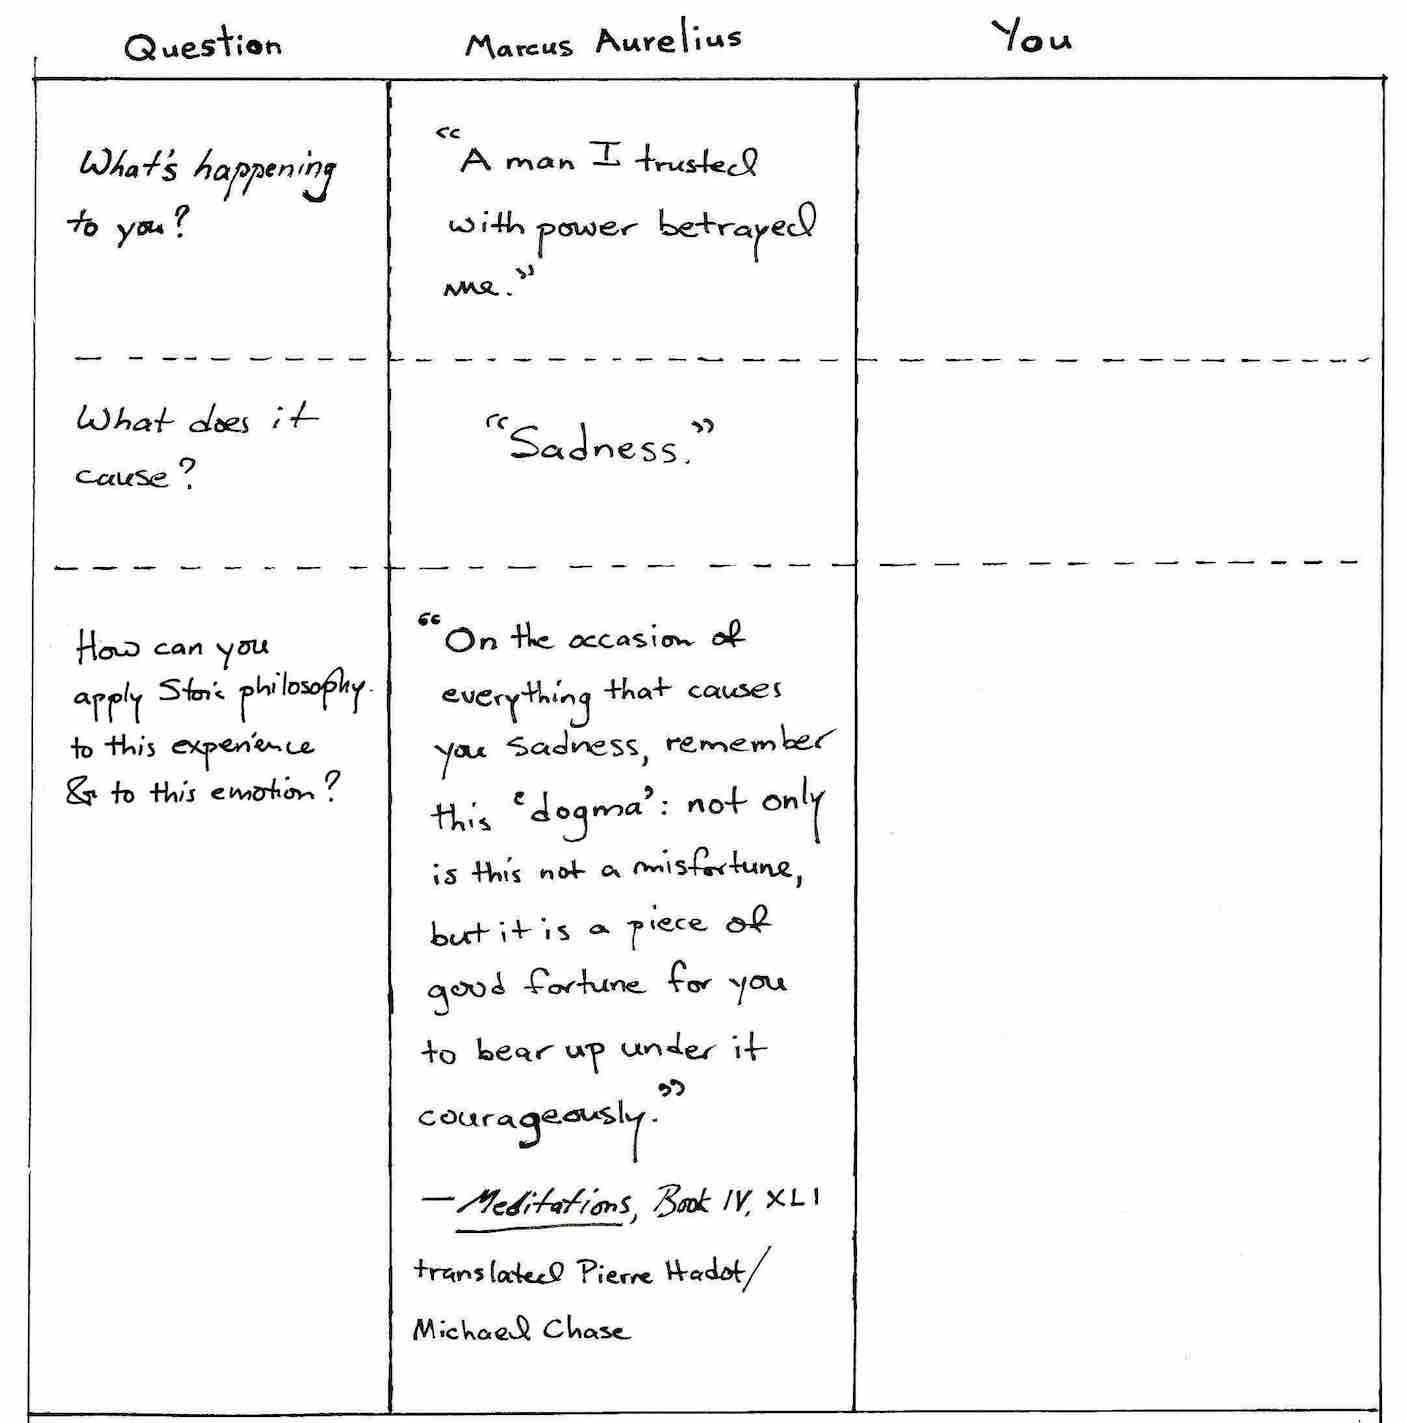 Question
Marcus Aurelius
You
What's happening
to you?
"A man I trusted
with power betrayed
me."
What does it
cause?
"Sadness."
How can you
apply Stoic philosophy
to this experience
& to this emotion?
"On the occasion of
everything that causes
you sadness, remember
this 'dogma': not only
is this not a misfortune,
but it is a piece of
good fortune for you
to bear up under it
courageously."
— Meditations, Book IV, XLI
translated Pierre Hadot/
Michael Chase